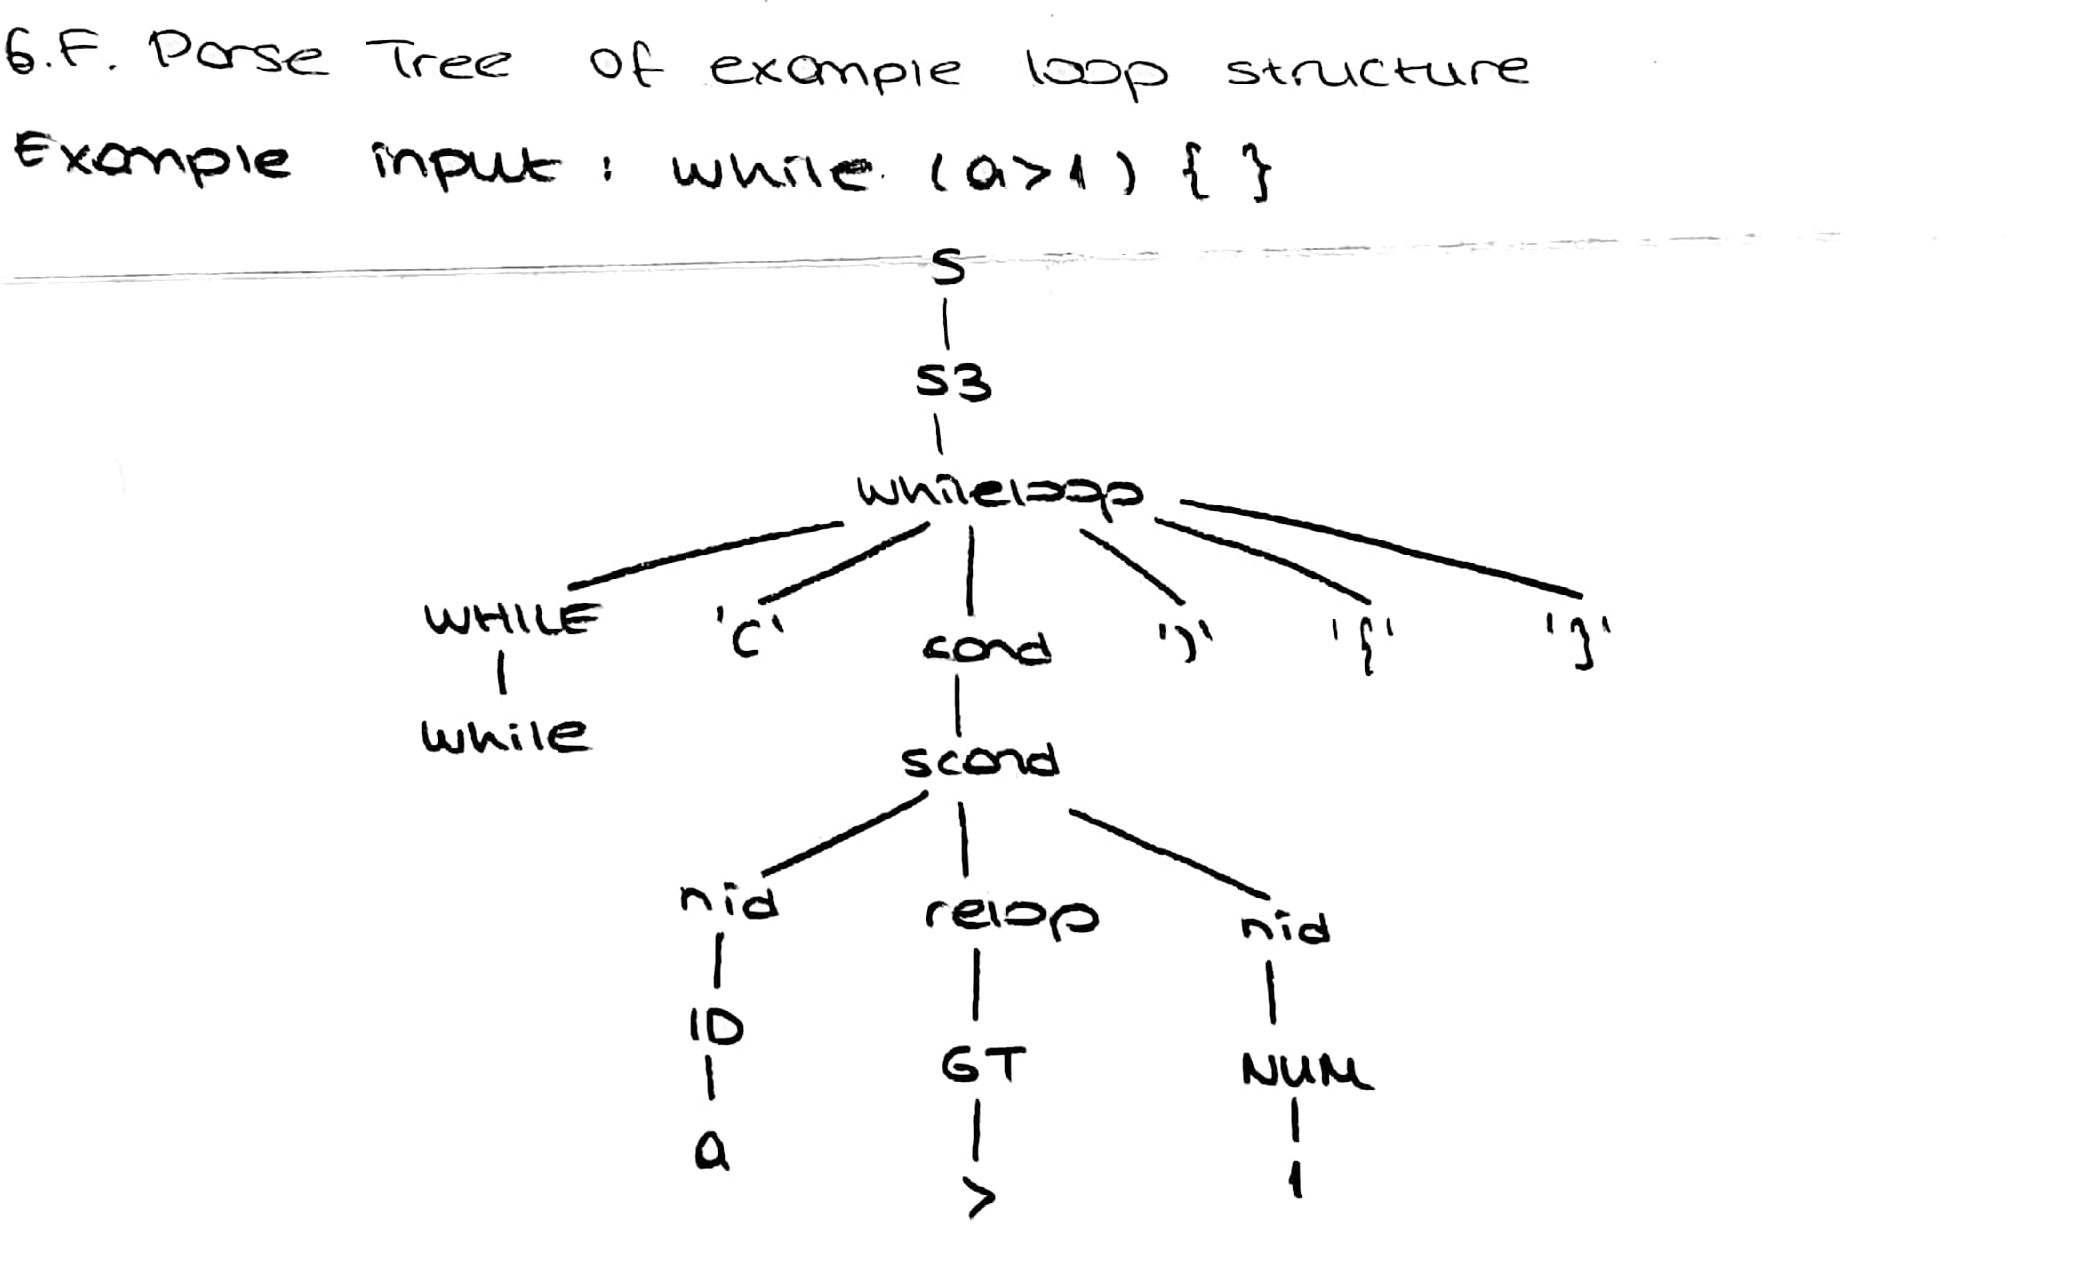 6.F. Parse Tree of example loop structure
Example input : while (a>1) { }
S
S3
whileloop
WHILE '(' cond ')' '{' '}'
while
scond
nid relop nid
ID GT NUM
a > 1